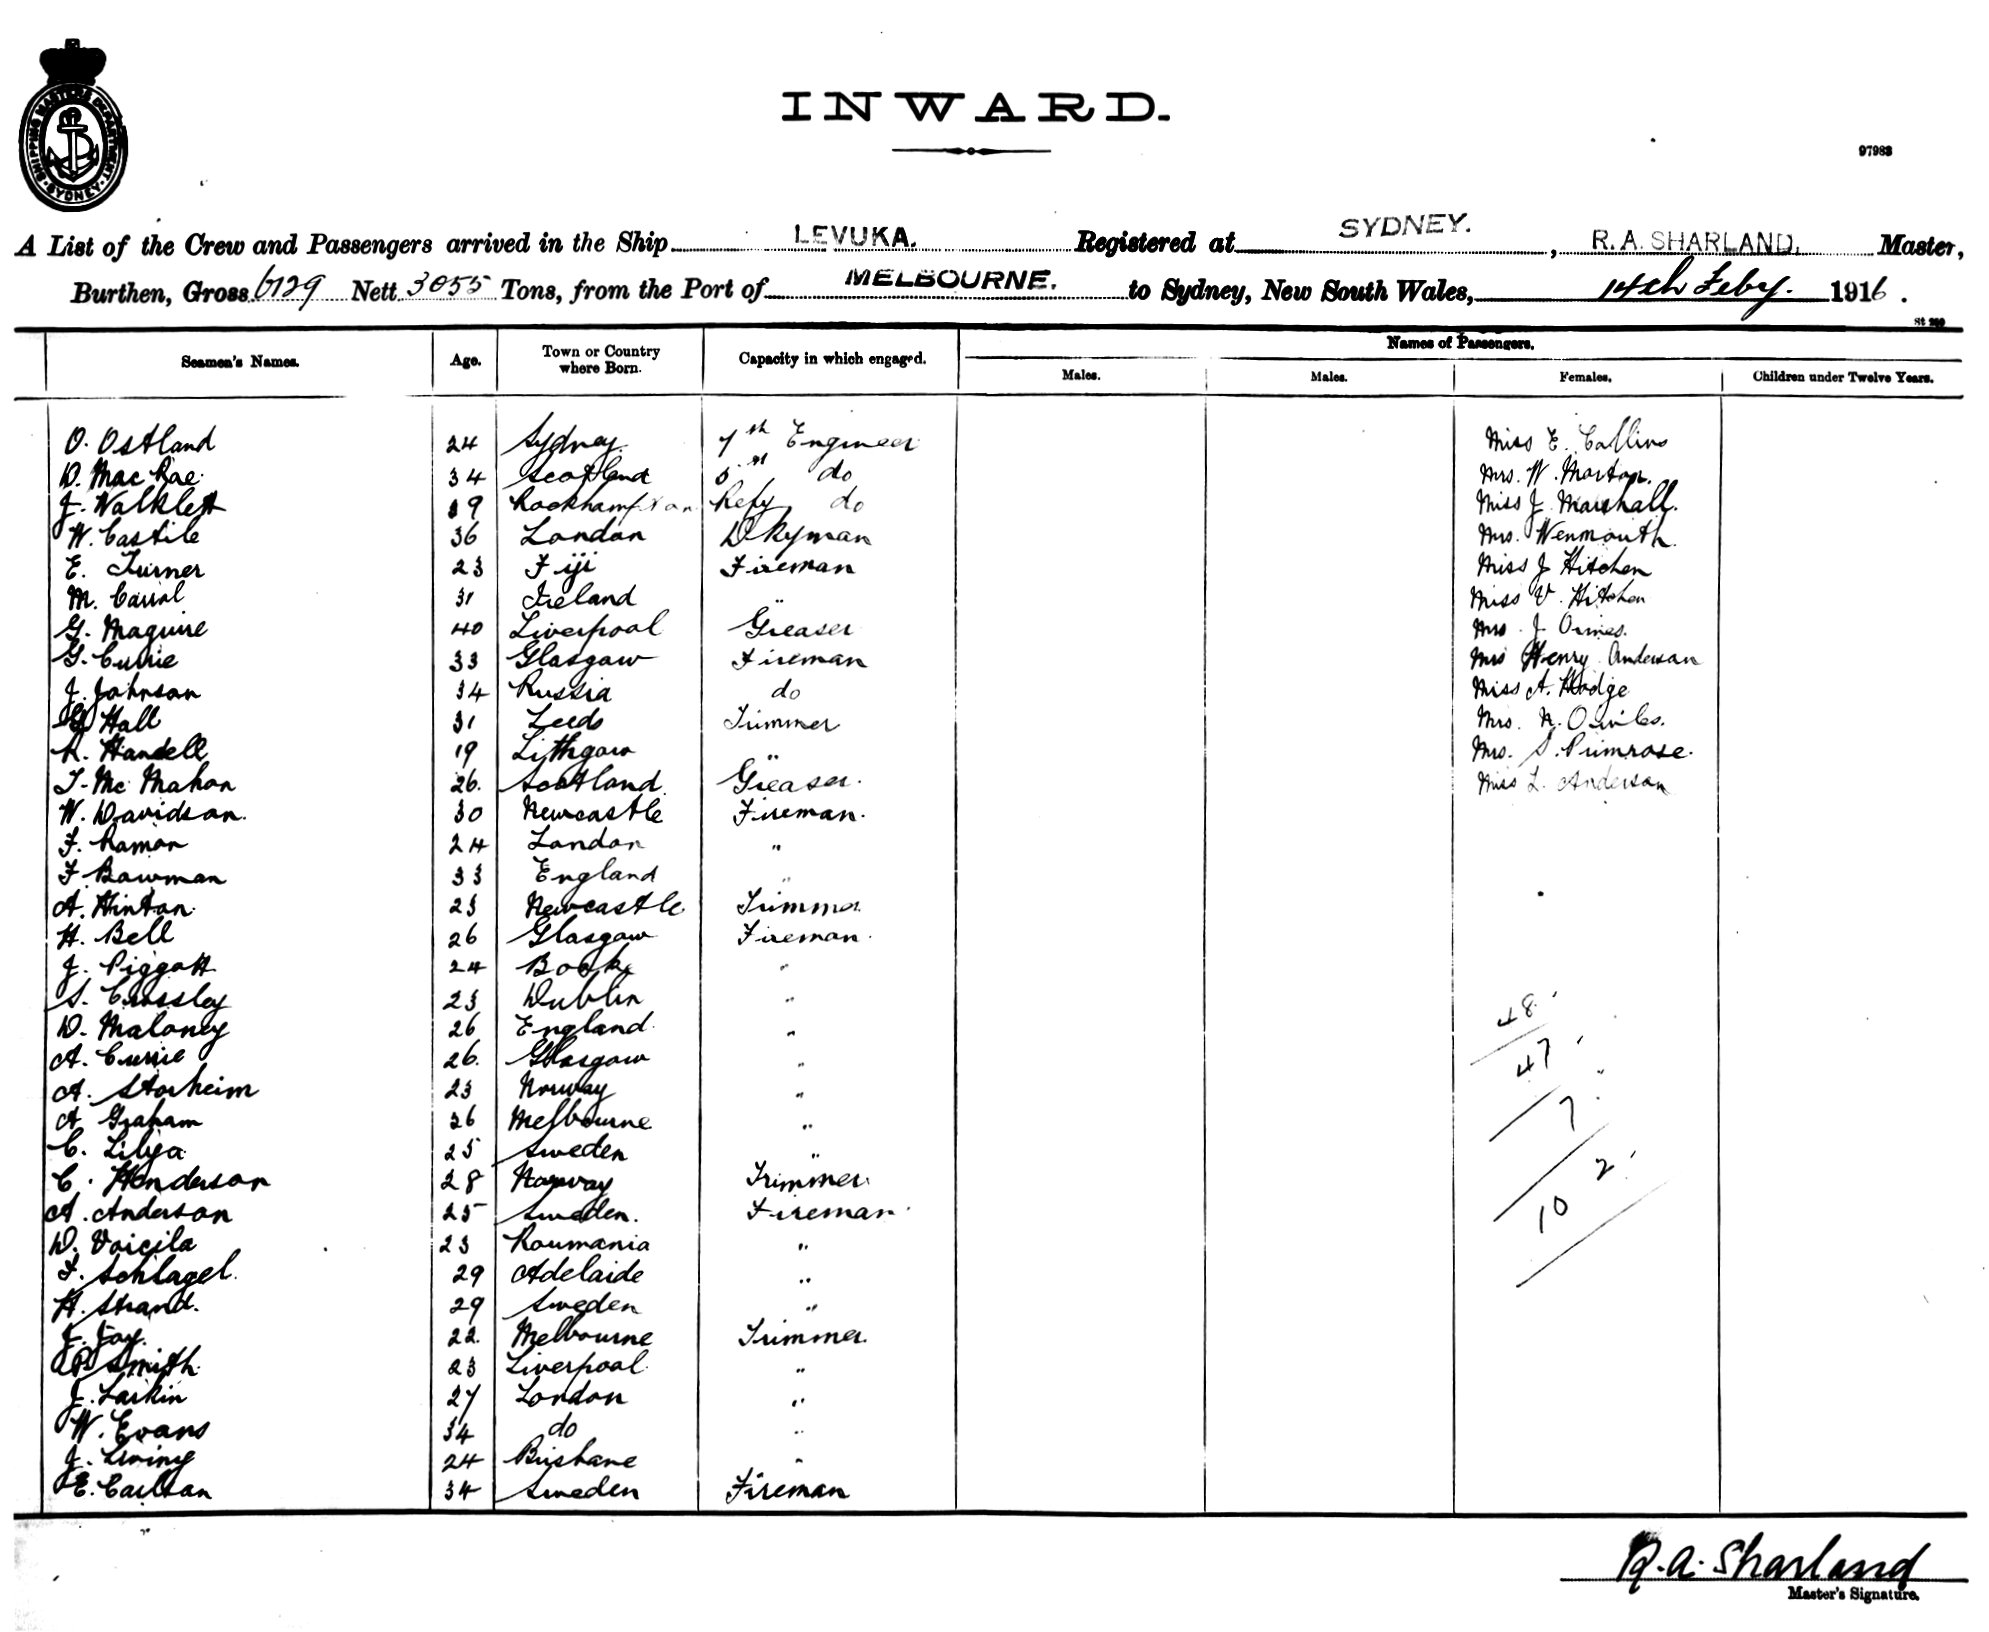 SHIPPING MASTERS DEPARTMENT. SYDNEY
INWARD.
97983
A List of the Crew and Passengers arrived in the Ship LEVUKA. Registered at SYDNEY. , R. A. SHARLAND, Master,
Burthen, Gross 6129 Nett 3055 Tons, from the Port of MELBOURNE. to Sydney, New South Wales, 14th Feby. 1916.
Seamen's Names. Age. Town or Country where Born. Capacity in which engaged. Names of Passengers.
Males. Males. Females. Children under Twelve Years.
O. Ostland 24 Sydney 7th Engineer Miss E. Collins
D. Mac Rae 34 Scotland do Mrs. W. Morton.
J. Walklett 39 Rockhampton Refy do Miss J. Marshall.
W. Castile 36 London Dkyman Mrs. Wenmouth.
E. Turner 23 Fiji Fireman Miss J Hitchen
M. Carrol 31 Ireland " Miss V. Hitchen
G. Maguire 40 Liverpool Greaser Mrs. J Ormes.
G. Currie 33 Glasgow Fireman Mrs Henry Anderson
J. Johnson 34 Russia do Miss A. Hodge
G Hall 31 Leeds Trimmer Mrs. N.
R. Handell 19 Lithgow " Mrs. S. Primrose.
T. Mc Mahon 26. Scotland Greaser. Miss L. Anderson
W. Davidson. 30 Newcastle Fireman.
F. Ramon 24 London "
F Bowman 33 England "
A. Hinton 23 Newcastle Trimmer
H. Bell 26 Glasgow Fireman.
J. Piggott 24 "
S. Crossley 23 Dublin "
D. Maloney 26 England "
A. Currie 26. Glasgow "
A. Storheim 23 Norway "
A Graham 26 Melbourne "
C. Lilja 25 Sweden "
C. Henderson 28 Norway Trimmer
A. Anderson 25 Sweden. Fireman
D. Voicila 23 Roumania "
F. Schlagel. 29 Adelaide "
H. Strand. 29 Sweden "
J. Joy. 22. Melbourne Trimmer.
P. Smith. 23 Liverpool "
J. Larkin 27 London "
W. Evans 34 do "
J. 24 Brisbane "
E. Carlson 34 Sweden Fireman
48
47
7
2
10
R.A. Sharland
Master's Signature.